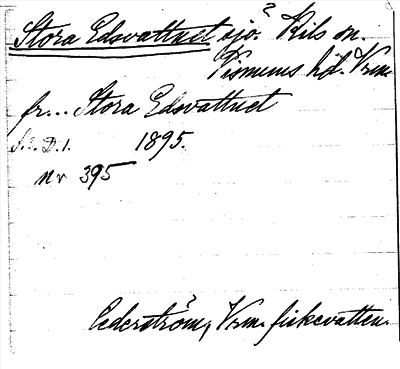 Stora Edsvattnet sjö? Kils sn.
Fr
Vismens häd. Vrm.
fr... Stora Edsvattnet
S.E.D.1. 1895.
nr 395
Cederström, Vrm. fiskevatten.